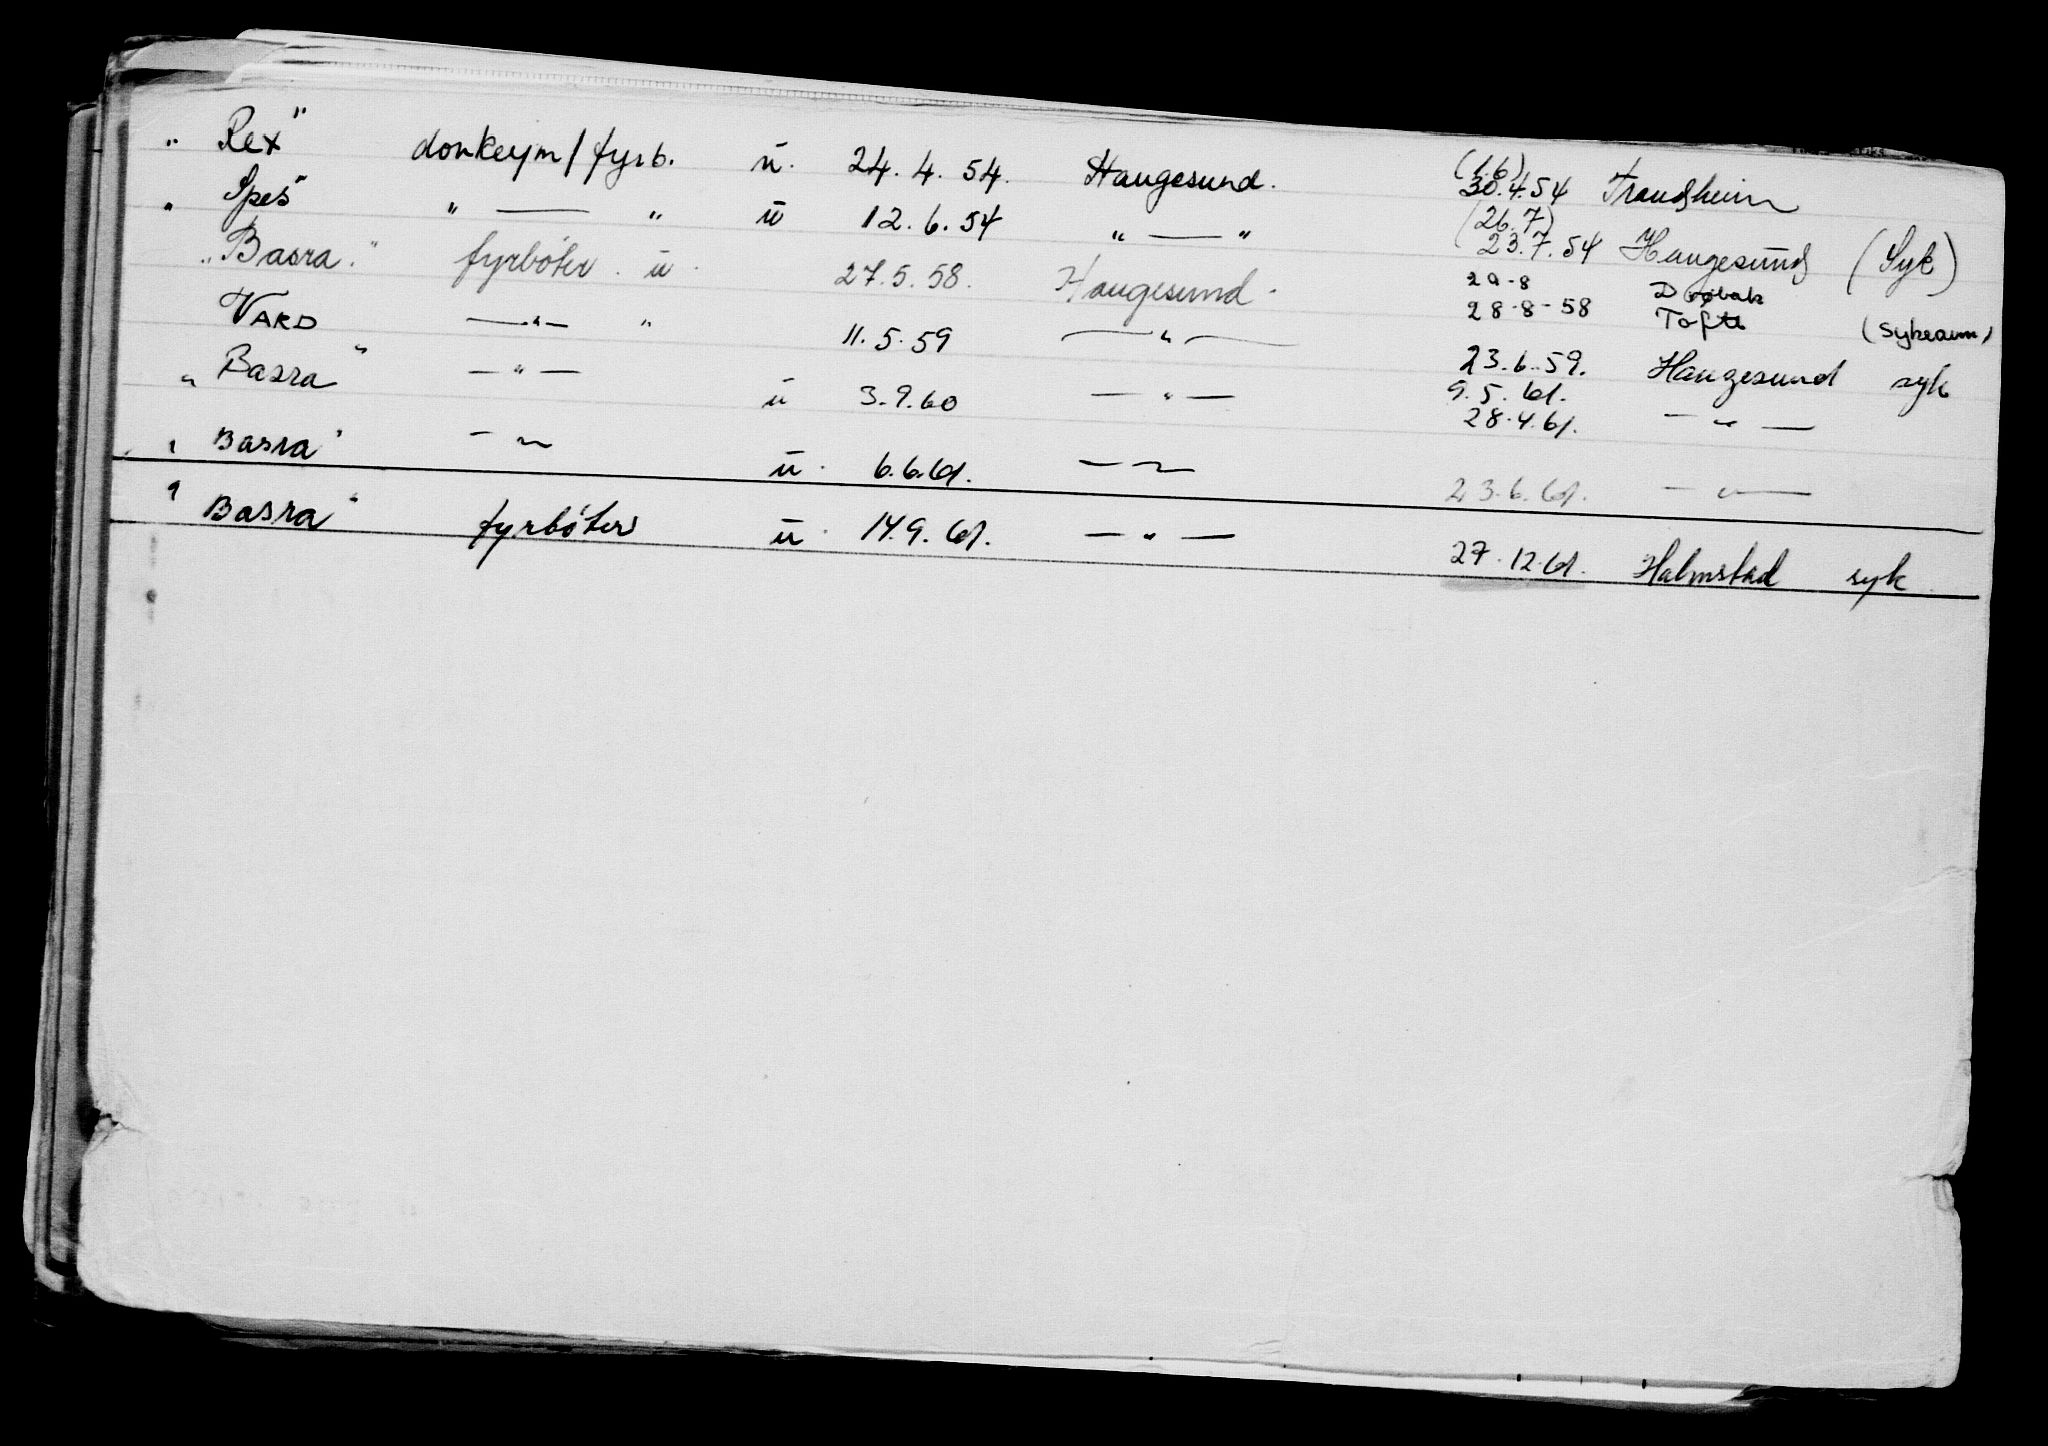 " Rex" donkeym/fyrb. u. 24.4.54. Haugesund. (1.6) 30.4.54 Trondheim
" Spes" " — " u 12.6.54 " — " (26.7) 23.7.54 Haugesund (Syk)
" Basra." fyrbøter. u. 27.5.58. Haugesund. 29-8 Drøbak
28-8-58 Tofte
VARD —"— " 11.5.59 —"— 23.6.59. Haugesund syk
" Basra" —"— u 3.9.60 —"— 9.5.61.
28.4.61. —"—
" Basra" —"— u. 6.6.61. —"— 23.6.61. —"—
" Basra" fyrbøter u. 14.9.61. —"— 27.12.61. Halmstad syk